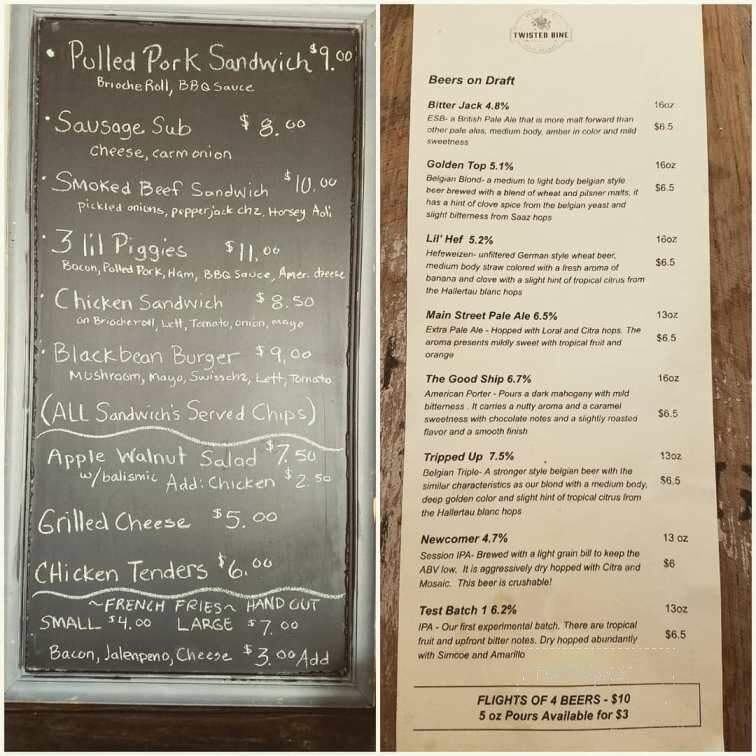 • Pulled Pork Sandwich $9.00
Brioche Roll, BBQ Sauce
• Sausage Sub $8.00
Cheese, carm onion
• Smoked Beef Sandwich $10.00
pickled onions, pepperjack chz, Horsey Aoli
• 3 lil Piggies $11.00
Bacon, Pulled Pork, Ham, BBQ Sauce, Amer. cheese
• Chicken Sandwich $8.50
on Brioche roll, Lett, Tomato, onion, mayo
• Blackbean Burger $9.00
Mushroom, Mayo, Swisschz, Lett, Tomato
(ALL Sandwich's Served Chips)
Apple Walnut Salad $7.50
w/balismic Add: Chicken $2.50
Grilled Cheese $5.00
CHicken Tenders $6.00
~FRENCH FRIES~ HAND CUT
SMALL $4.00 LARGE $7.00
Bacon, Jalenpeno, Cheese $3.00 Add
TWISTED BINE
Beers on Draft
Bitter Jack 4.8% 16oz
ESB- a British Pale Ale that is more malt forward than
other pale ales, medium body, amber in color and mild $6.5
sweetness
Golden Top 5.1% 16oz
Belgian Blond- a medium to light body belgian style
beer brewed with a blend of wheat and pilsner malts, it $6.5
has a hint of clove spice from the belgian yeast and
slight bitterness from Saaz hops
Lil' Hef 5.2% 16oz
Hefeweizen- unfiltered German style wheat beer,
medium body straw colored with a fresh aroma of $6.5
banana and clove with a slight hint of tropical citrus from
the Hallertau blanc hops
Main Street Pale Ale 6.5% 13oz
Extra Pale Ale - Hopped with Loral and Citra hops. The
aroma presents mildly sweet with tropical fruit and $6.5
orange
The Good Ship 6.7% 16oz
American Porter - Pours a dark mahogany with mild
bitterness . It carries a nutty aroma and a caramel
sweetness with chocolate notes and a slightly roasted $6.5
flavor and a smooth finish
Tripped Up 7.5% 13oz
Belgian Triple- A stronger style belgian beer with the
similar characteristics as our blond with a medium body, $6.5
deep golden color and slight hint of tropical citrus from
the Hallertau blanc hops
Newcomer 4.7% 13 oz
Session IPA- Brewed with a light grain bill to keep the
ABV low. It is aggressively dry hopped with Citra and $6
Mosaic. This beer is crushable!
Test Batch 1 6.2% 13oz
IPA - Our first experimental batch. There are tropical
fruit and upfront bitter notes. Dry hopped abundantly $6.5
with Simcoe and Amarillo
FLIGHTS OF 4 BEERS - $10
5 oz Pours Available for $3